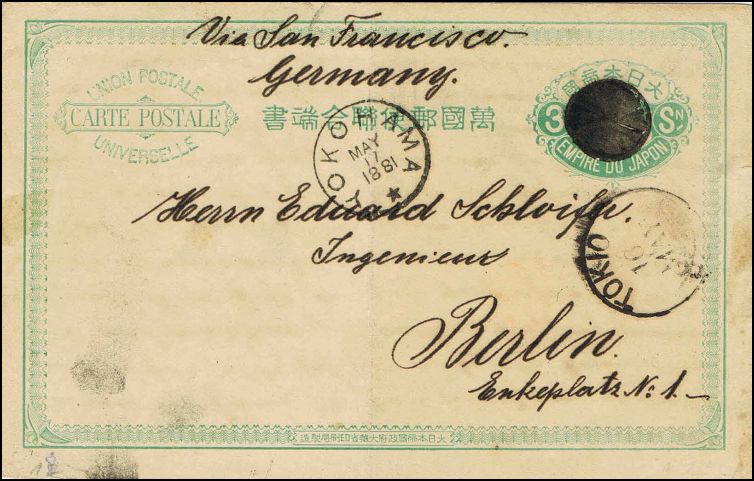 Via San Francisco.
Germany.
UNION POSTALE
CARTE POSTALE
UNIVERSELLE
萬國郵便聯合端書
大日本帝國
3 Sn
EMPIRE DU JAPON
YOKOHAMA
MAY
17
1881
TOKIO
Herrn Eduard
Ingenieur
Berlin.
Enkeplatz No. 1.
大日本帝國政府大藏省印刷局製造